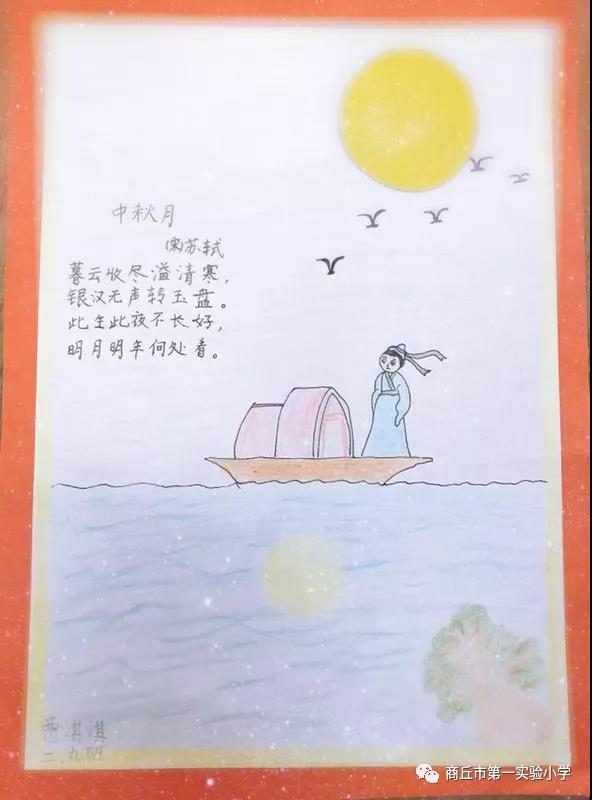 中秋月
宋苏轼
暮云收尽溢清寒，
银汉无声转玉盘。
此生此夜不长好，
明月明年何处看。
淇淇
二、九班
商丘市第一实验小学